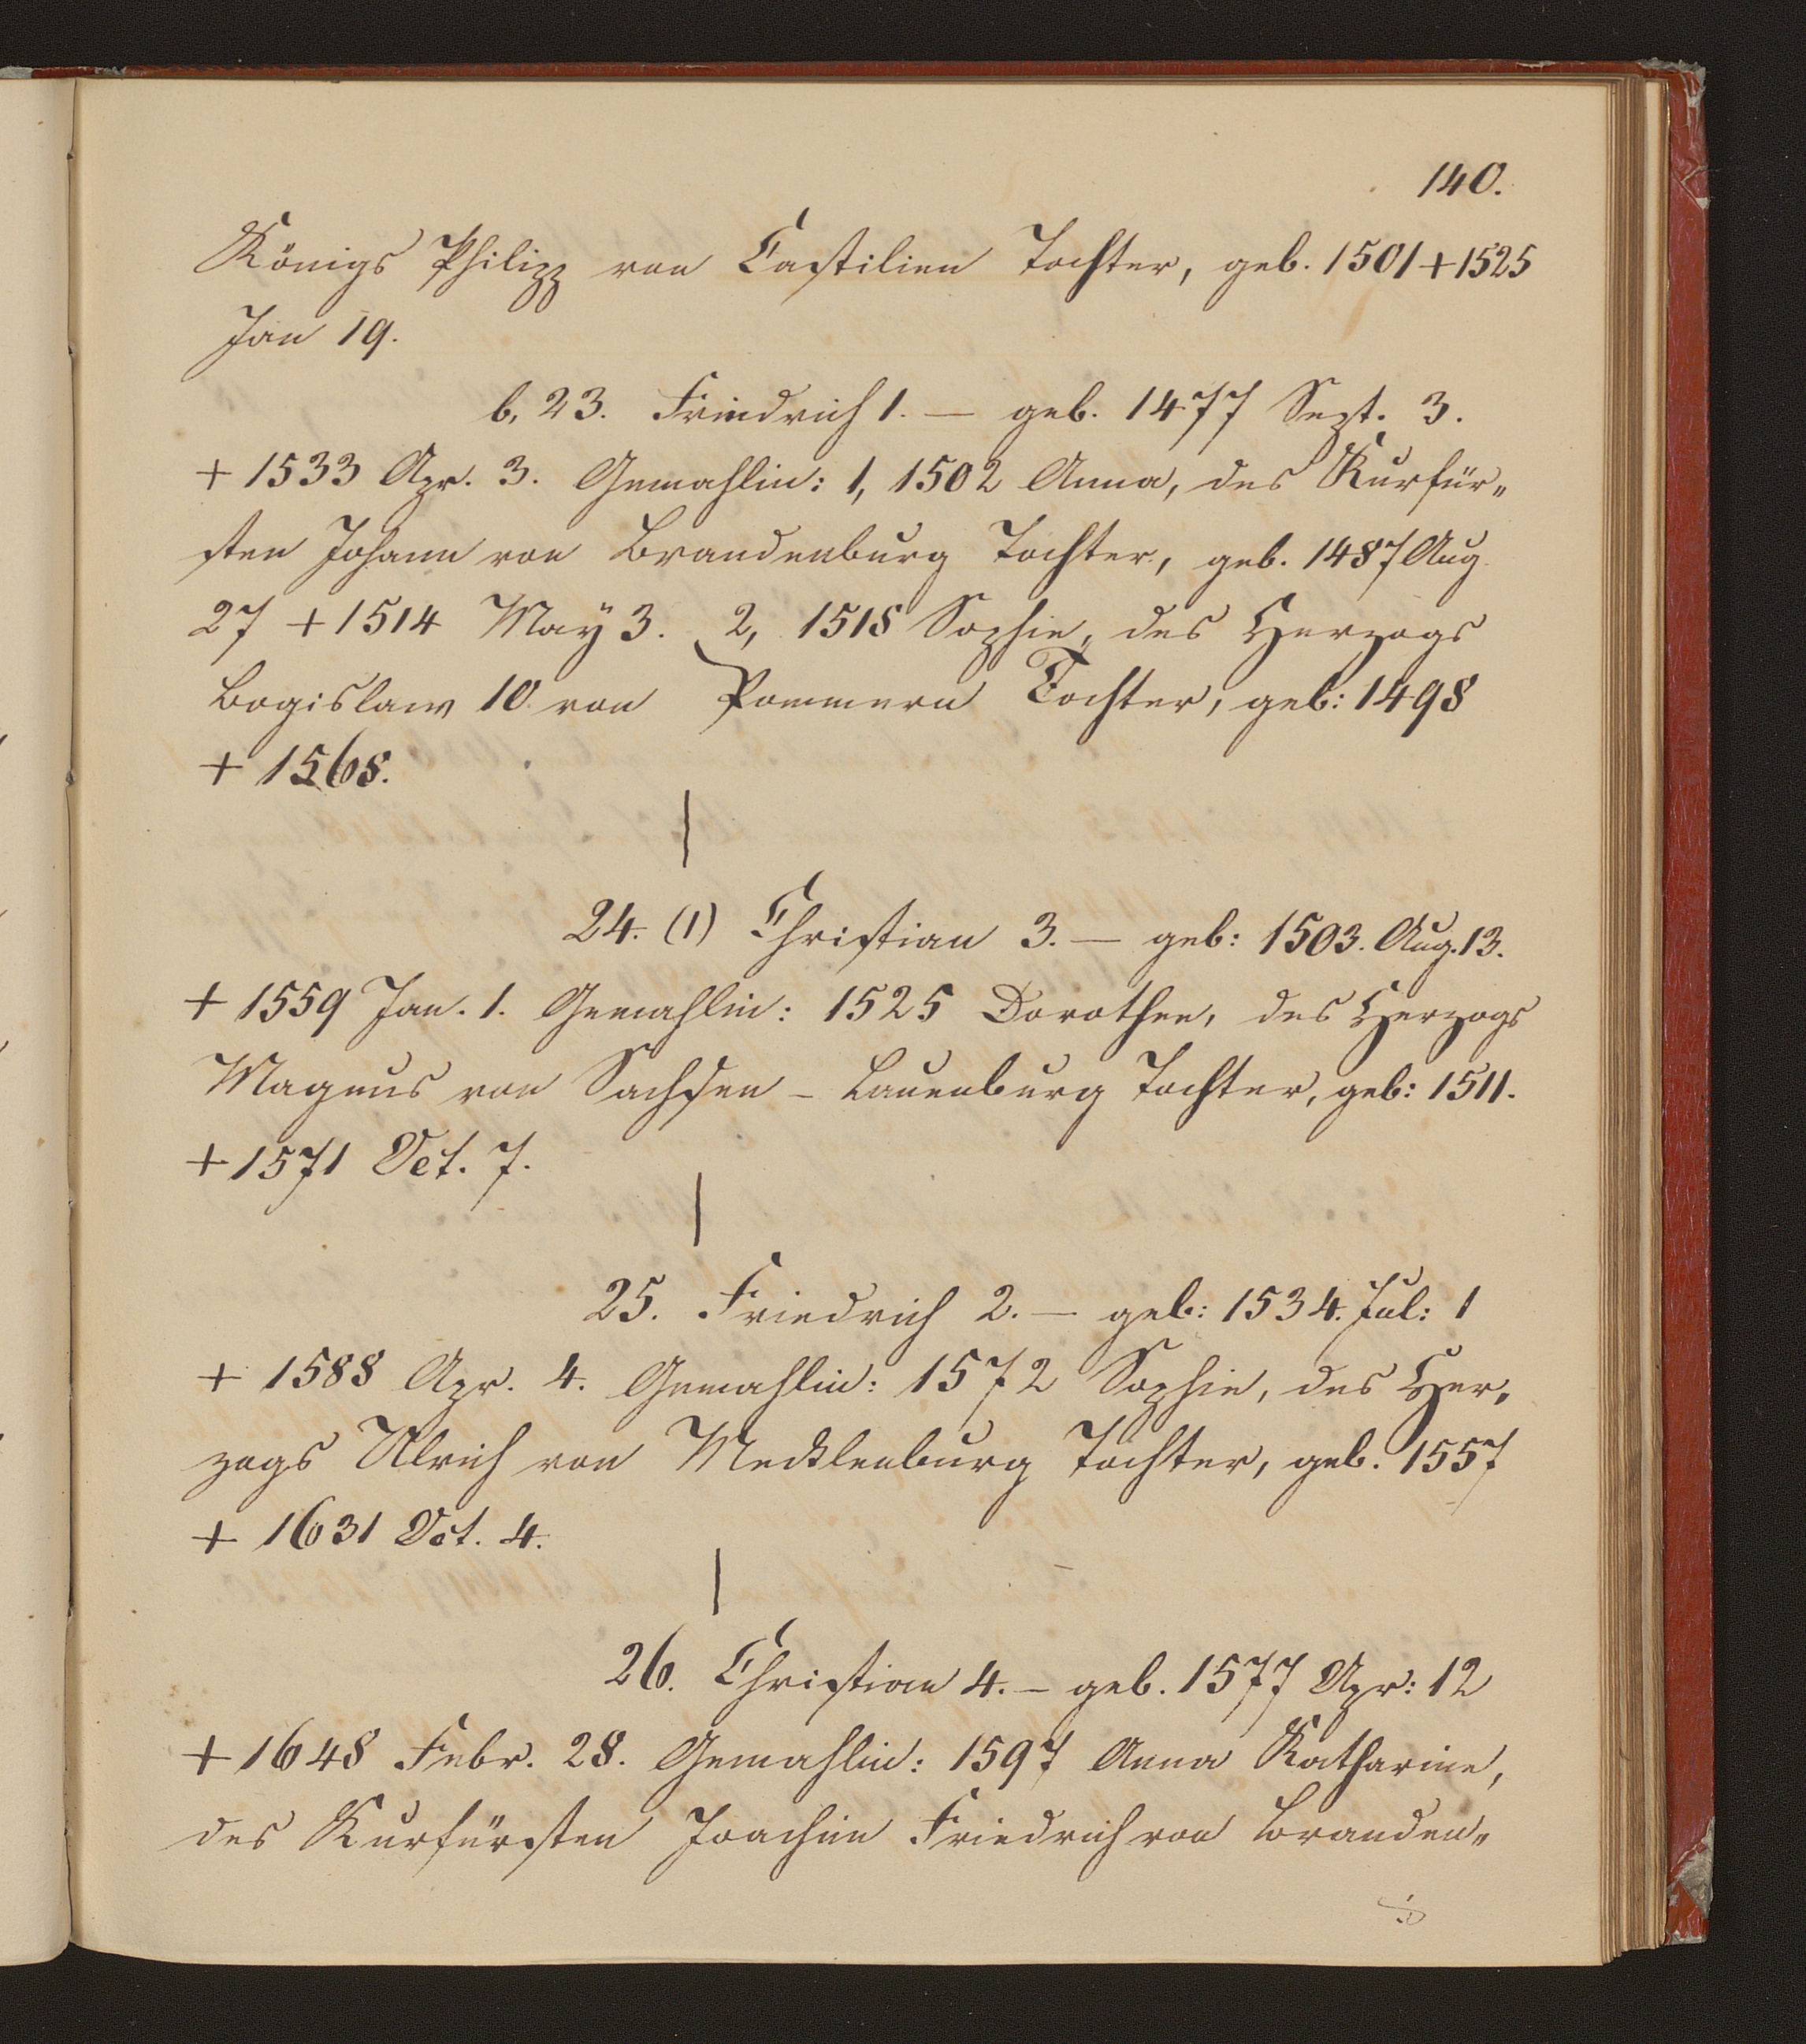 140.
Königs Philipp von Castilien Tochter, geb. 1501 + 1525
Jan 19.
b, 23. Friedrich 1. — geb. 1477 Sept. 3.
+ 1533 Apr. 3. Gemahlin: 1, 1502 Anna, des Kurfür„
sten Johann von Brandenburg Tochter, geb. 1487 Aug.
27 + 1514 Maÿ 3. 2, 1518 Sophie, des Herzogs
Bogislaw 10. von Pommern Tochter, geb: 1498
+ 1568.
24. (1) Christian 3. — geb: 1503. Aug. 13.
+ 1559 Jan. 1. Gemahlin: 1525 Dorothee, des Herzogs
Magnus von Sachsen - Lauenburg Tochter, geb: 1511.
+ 1571 Oct. 7.
25. Friedrich 2. — geb: 1534. Jul: 1
+ 1588 Apr. 4. Gemahlin: 1572 Sophie, des Her„
zogs Ulrich von Mecklenburg Tochter, geb. 1557
+ 1631 Oct. 4.
26. Christian 4. — geb. 1577 Apr: 12
+ 1648 Febr. 28. Gemahlin: 1597 Anna Katharine,
des Kurfürsten Joachim Friedrich von Branden„